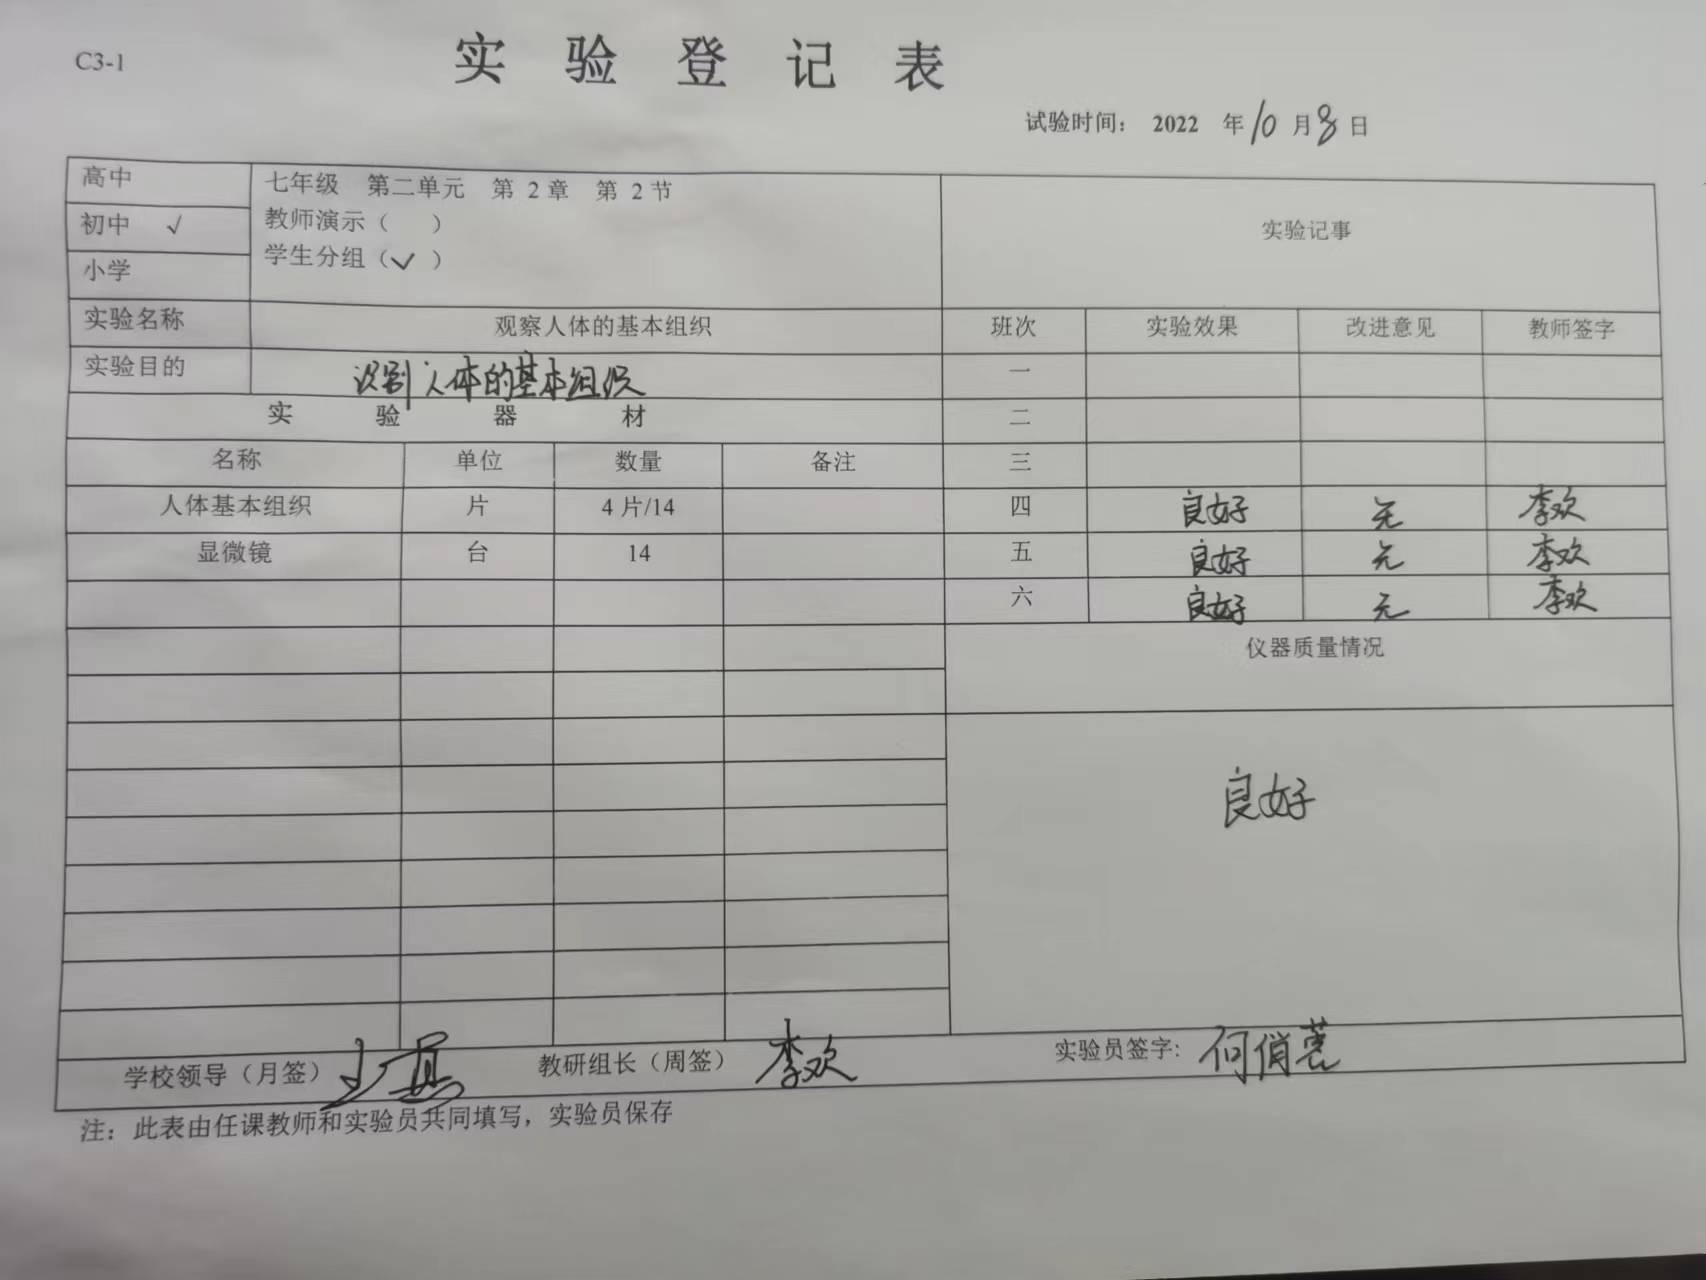 C3-1
实验登记表
试验时间： 2022 年10月8日
高中
初中 √
小学
七年级 第二单元 第 2 章 第 2 节
教师演示（ ）
学生分组（✓）
实验记事
实验名称 观察人体的基本组织
班次 实验效果 改进意见 教师签字
实验目的 识别人体的基本组织
一
实验器材
二
名称 单位 数量 备注
三
人体基本组织 片 4 片/14
四 良好 无 李欢
显微镜 台 14
五 良好 无 李欢
六 良好 无 李欢
仪器质量情况
良好
学校领导（月签）
教研组长（周签） 李欢
实验员签字: 何俏
注：此表由任课教师和实验员共同填写，实验员保存